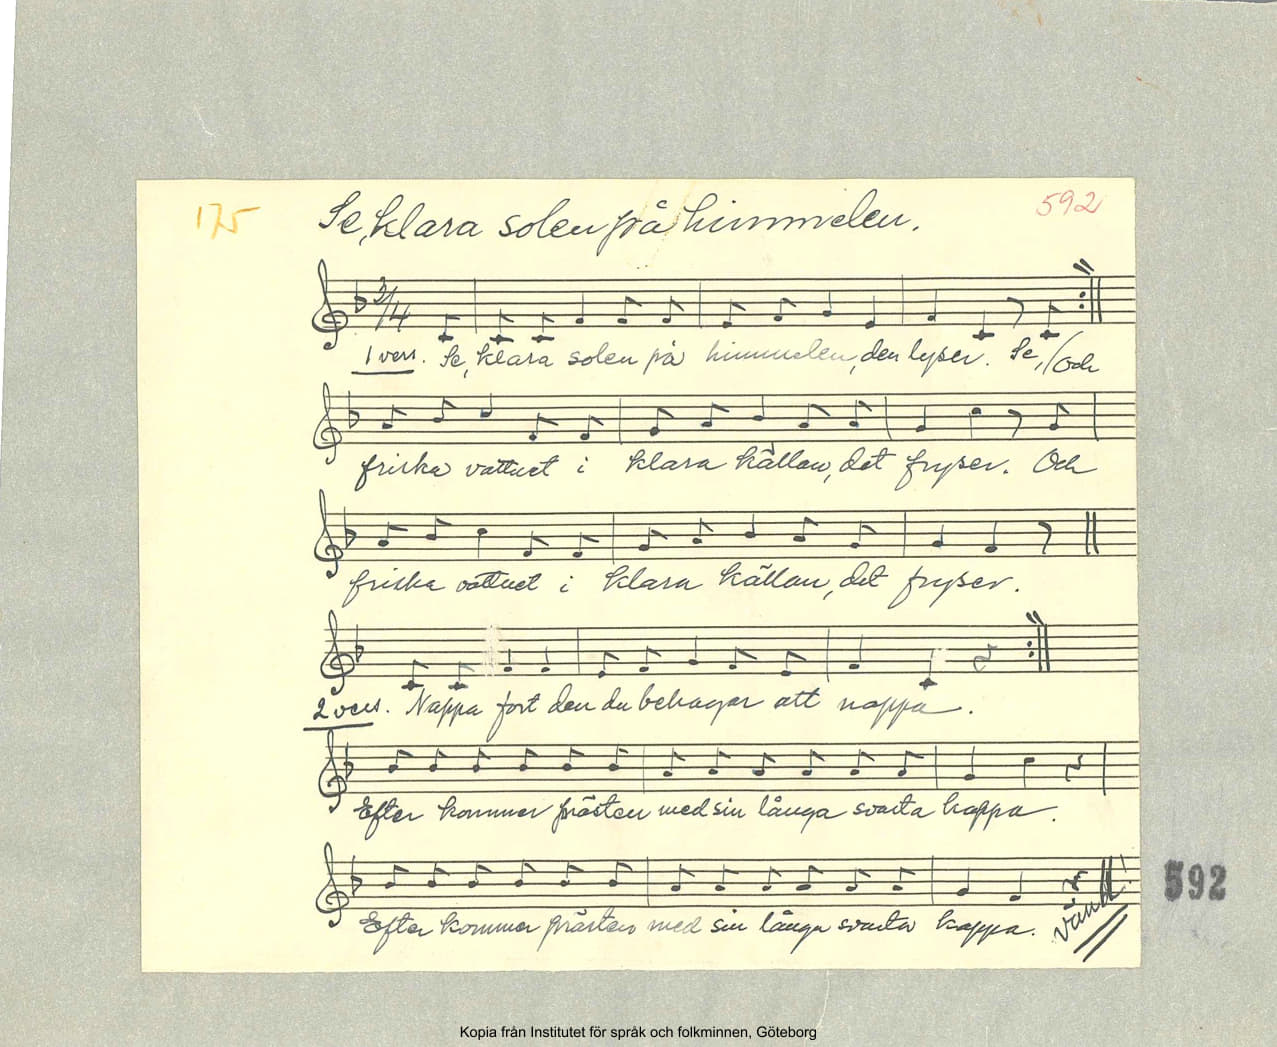 175
592
Se, klara solen på himmelen.
3/4
1 vers. Se, klara solen på himmelen, den lyser. Se, (Och
friska vattnet i klara källan, det fryser. Och
friska vattnet i klara källan, det fryser.
2 vers. Nappa fort den du behagar att nappa.
Efter kommer prästen med sin långa svarta kappa.
Efter kommer prästen med sin långa svarta kappa.
vänd!
592
Kopia från Institutet för språk och folkminnen, Göteborg